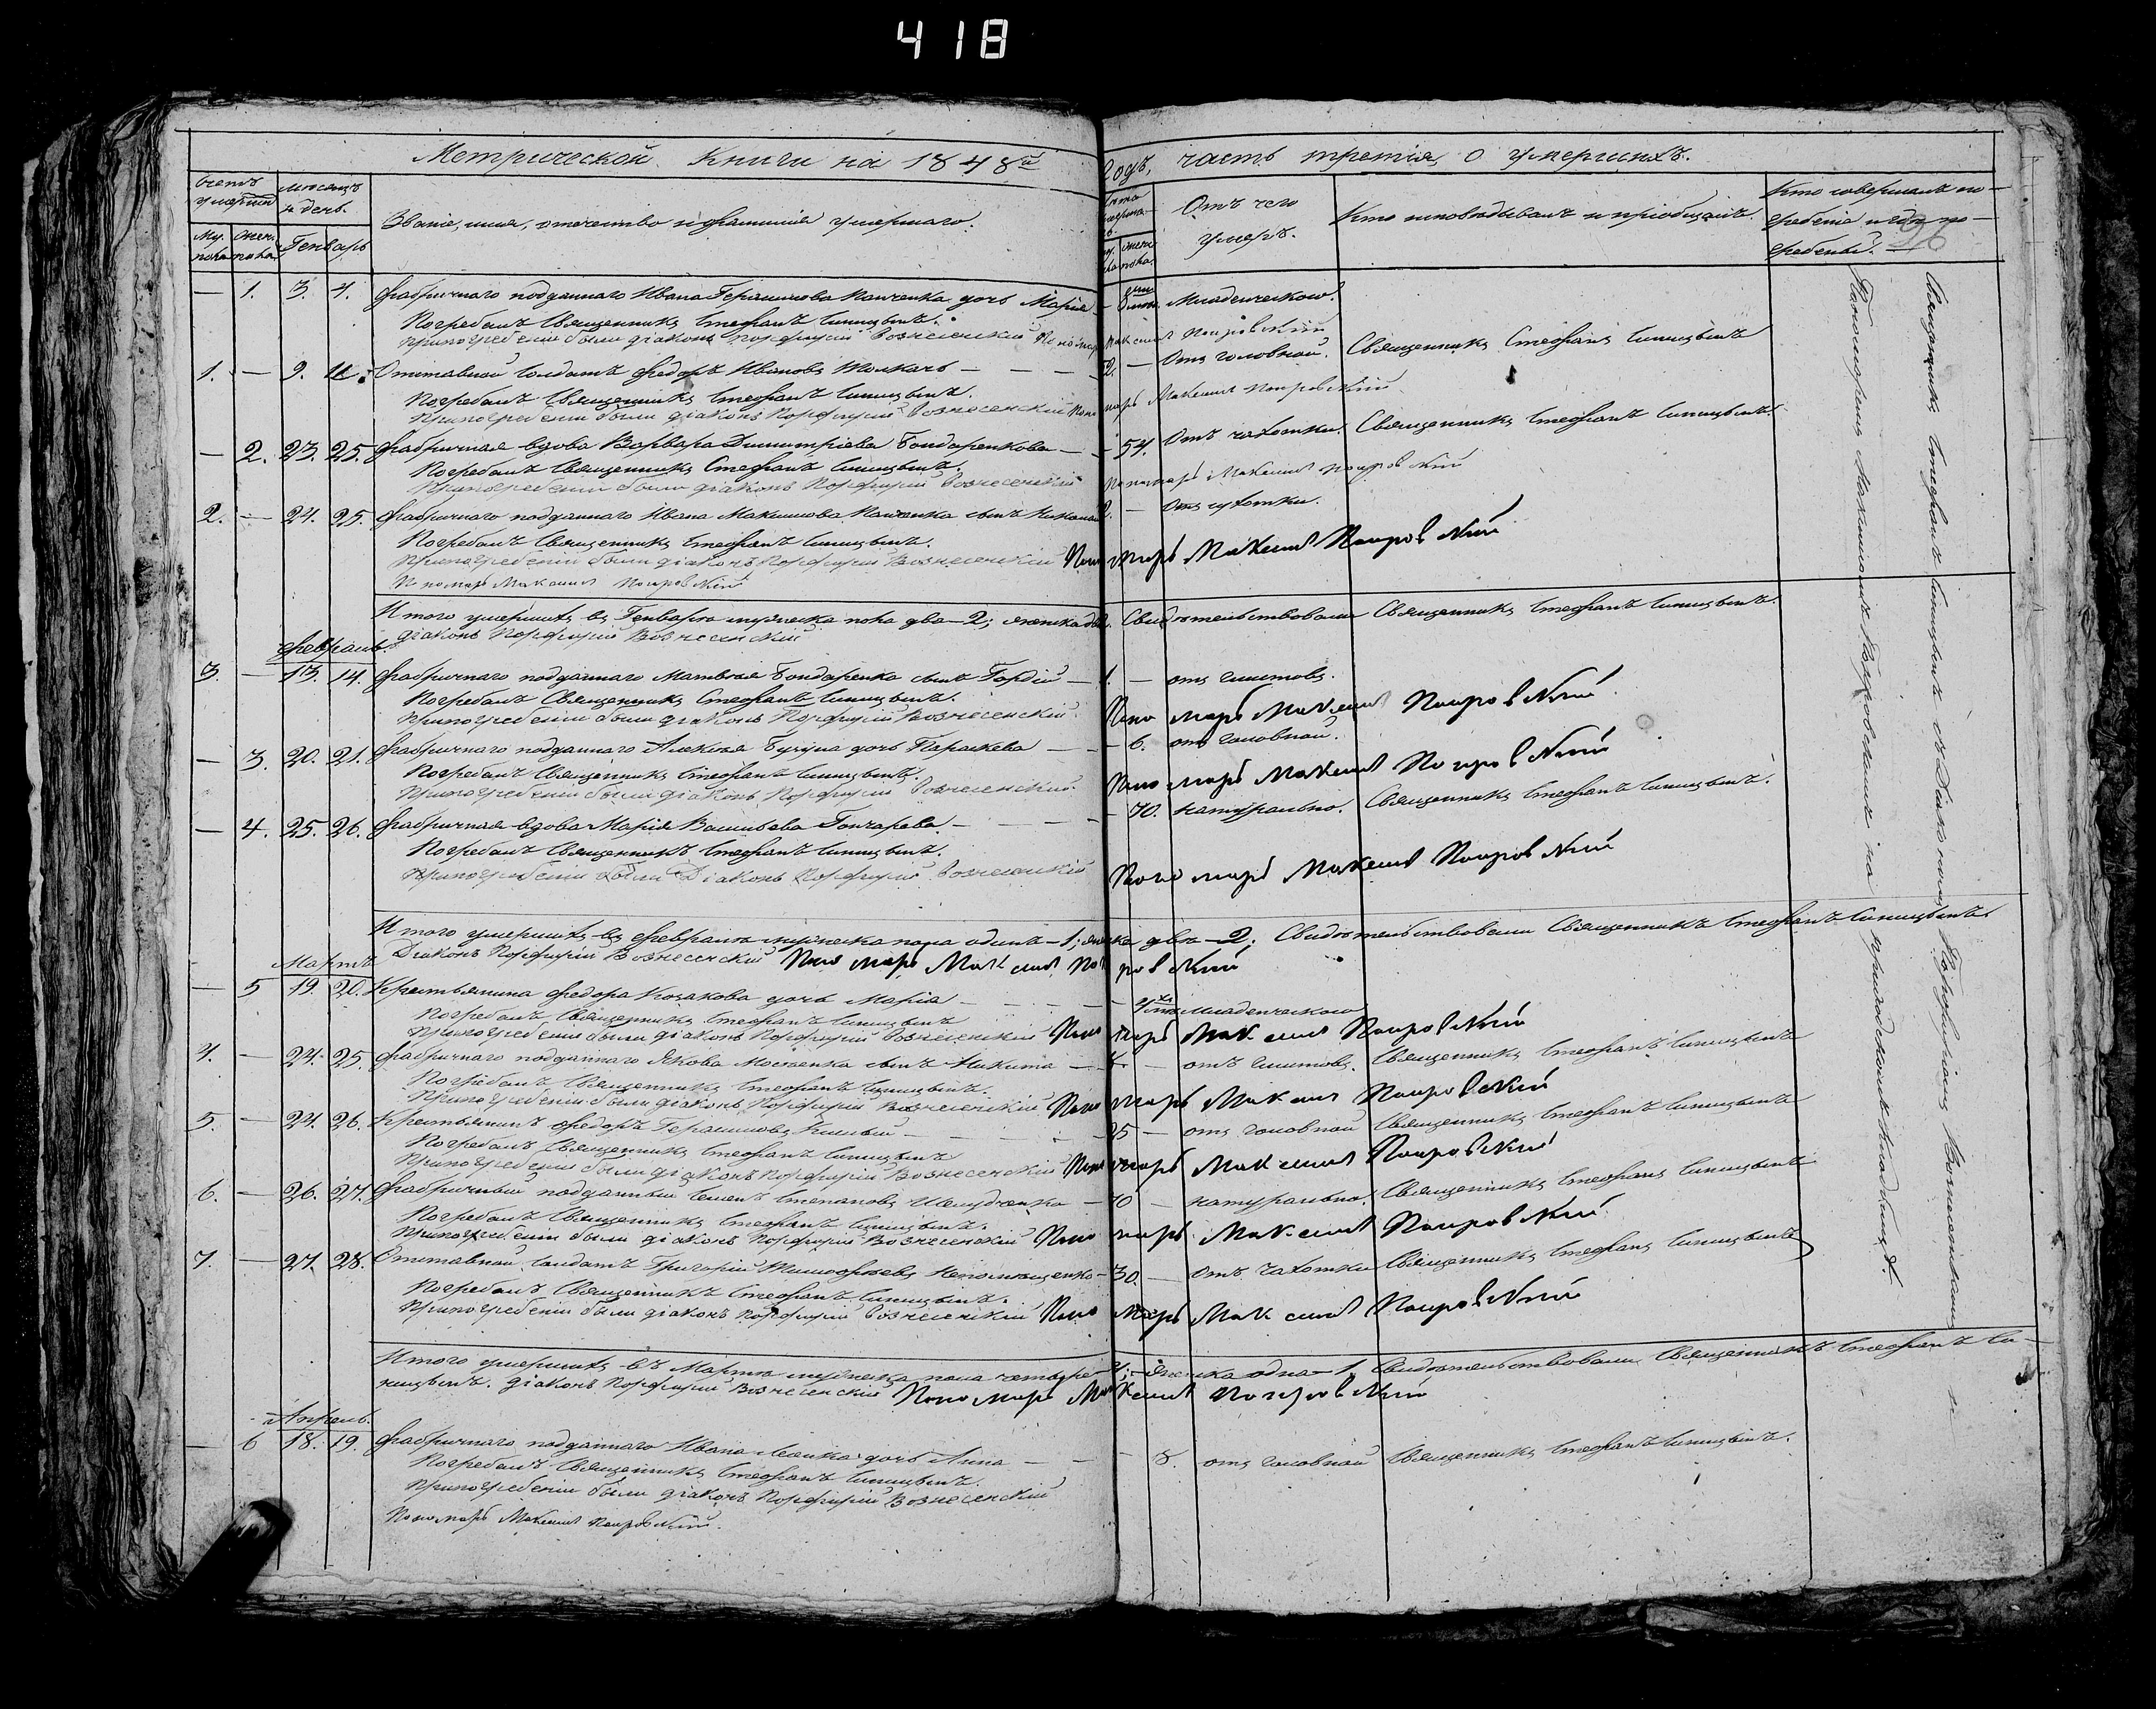 418
Метрической Книги на 1848й Годъ, часть третія, о умершихъ.
Счетъ умерши
Мѣсяцъ и день.
Званіе, имя, отечество и фамилія умершаго.
Лѣта умерша
Отъ чего умеръ.
Кто исповѣдывалъ и пріобщалъ.
Кто совершалъ по-
гребеніе и гдѣ по-
гребены.
Му. пола
Женс. пола
Генварь
— 1. 3. 4. Фабричнаго подданнаго Ивана Герасимова Панченка дочь Марія — Младенческою.
Погребалъ Священникъ Стефанъ Синицынъ.
При погребеніи были діаконъ Порфирій Вознесенскій Пономарь Максимъ Покровскій
1. — 9. 11. Отставной Солдатъ Федоръ Ивановъ Толкачь — — — — Отъ головной. Священникъ Стефанъ Синицынъ
Погребалъ Священникъ Стефанъ Синицынъ.
При погребеніи были діаконъ Порфирій Вознесенскій Пономарь Максимъ Покровскій
— 2. 23. 25. Фабричная вдова Варвара Димитріева Бондаренкова — — 54. Отъ чахотки. Священникъ Стефанъ Синицынъ.
Погребалъ Священникъ Стефанъ Синицынъ.
При погребеніи были діаконъ Порфирій Вознесенскій Пономарь Максимъ Покровскій
2. — 24. 25. Фабричнаго подданнаго Ивана Максимова Панченка сынъ — Отъ сухотки.
Погребалъ Священникъ Стефанъ Синицынъ.
При погребеніи были діаконъ Порфирій Вознесенскій Пономарь Максимъ Покровскій
Пономарь Максимъ Покровскій
Итого умершихъ въ Генварѣ мужеска пола два — 2; женска двѣ. Свидѣтельствовали Священникъ Стефанъ Синицынъ.
Діаконъ Порфирій Вознесенскій
Февраль.
3. — 13. 14. Фабричнаго подданнаго Матвѣя Бондаренка сынъ Гордій — 1. — отъ глистовъ.
Погребалъ Священникъ Стефанъ Синицынъ.
При погребеніи были діаконъ Порфирій Вознесенскій Пономарь Максимъ Покровскій
— 3. 20. 21. Фабричнаго подданнаго Алексѣя дочь Параскева — — — 6. отъ головной.
Погребалъ Священникъ Стефанъ Синицынъ.
При погребеніи были діаконъ Порфирій Вознесенскій Пономарь Максимъ Покровскій
— 4. 25. 26. Фабричная вдова Марія Васильева Гончарева — — — — 70. натурально. Священникъ Стефанъ Синицынъ.
Погребалъ Священникъ Стефанъ Синицынъ.
При погребеніи были Діаконъ Порфирій Вознесенскій Пономарь Максимъ Покровскій
Итого умершихъ въ Февралѣ мужеска пола одинъ — 1; женска двѣ — 2; Свидѣтельствовали Священникъ Стефанъ Синицынъ.
Діаконъ Порфирій Вознесенскій Пономарь Максимъ Покровскій
Мартъ
— 5 19. 20. Крестьянина Федора Козакова дочь Марія — — — — Младенческою
Погребалъ Священникъ Стефанъ Синицынъ
При погребеніи были діаконъ Порфирій Вознесенскій Пономарь Максимъ Покровскій
4. — 24. 25. Фабричнаго подданнаго Якова сынъ Никита — — отъ глистовъ. Священникъ Стефанъ Синицынъ
Погребалъ Священникъ Стефанъ Синицынъ.
При погребеніи были діаконъ Порфирій Вознесенскій Пономарь Максимъ Покровскій
5. — 24. 26. Крестьянинъ Федоръ Герасимовъ — — — 25 — отъ головной Священникъ Стефанъ Синицынъ
Погребалъ Священникъ Стефанъ Синицынъ
При погребеніи были діаконъ Порфирій Вознесенскій Пономарь Максимъ Покровскій
6. — 26. 27. Фабричный подданный Семенъ Степановъ Шелудченко — — натурально. Священникъ Стефанъ Синицынъ
Погребалъ Священникъ Стефанъ Синицынъ.
При погребеніи были діаконъ Порфирій Вознесенскій Пономарь Максимъ Покровскій
7. — 27. 28. Отставной Солдатъ Григорій Тимофѣевъ — 30. — Отъ чахотки Священникъ Стефанъ Синицынъ
Погребалъ Священникъ Стефанъ Синицынъ.
При погребеніи были діаконъ Порфирій Вознесенскій Пономарь Максимъ Покровскій
Итого умершихъ въ Мартѣ мужеска пола четыре — 4; женска одна — 1. Свидѣтельствовали Священникъ Стефанъ Си-
ницынъ. Діаконъ Порфирій Вознесенскій Пономарь Максимъ Покровскій
Апрель.
— 6 18. 19. Фабричнаго подданнаго Ивана дочь Анна — — — 8. отъ головной Священникъ Стефанъ Синицынъ.
Погребалъ Священникъ Стефанъ Синицынъ.
При погребеніи были діаконъ Порфирій Вознесенскій
Пономарь Максимъ Покровскій.
Священникъ Стефанъ Синицынъ съ Діакономъ Порфиріемъ Вознесенскимъ и
Пономаремъ Максимомъ Покровскимъ на приходскомъ кладбищѣ.